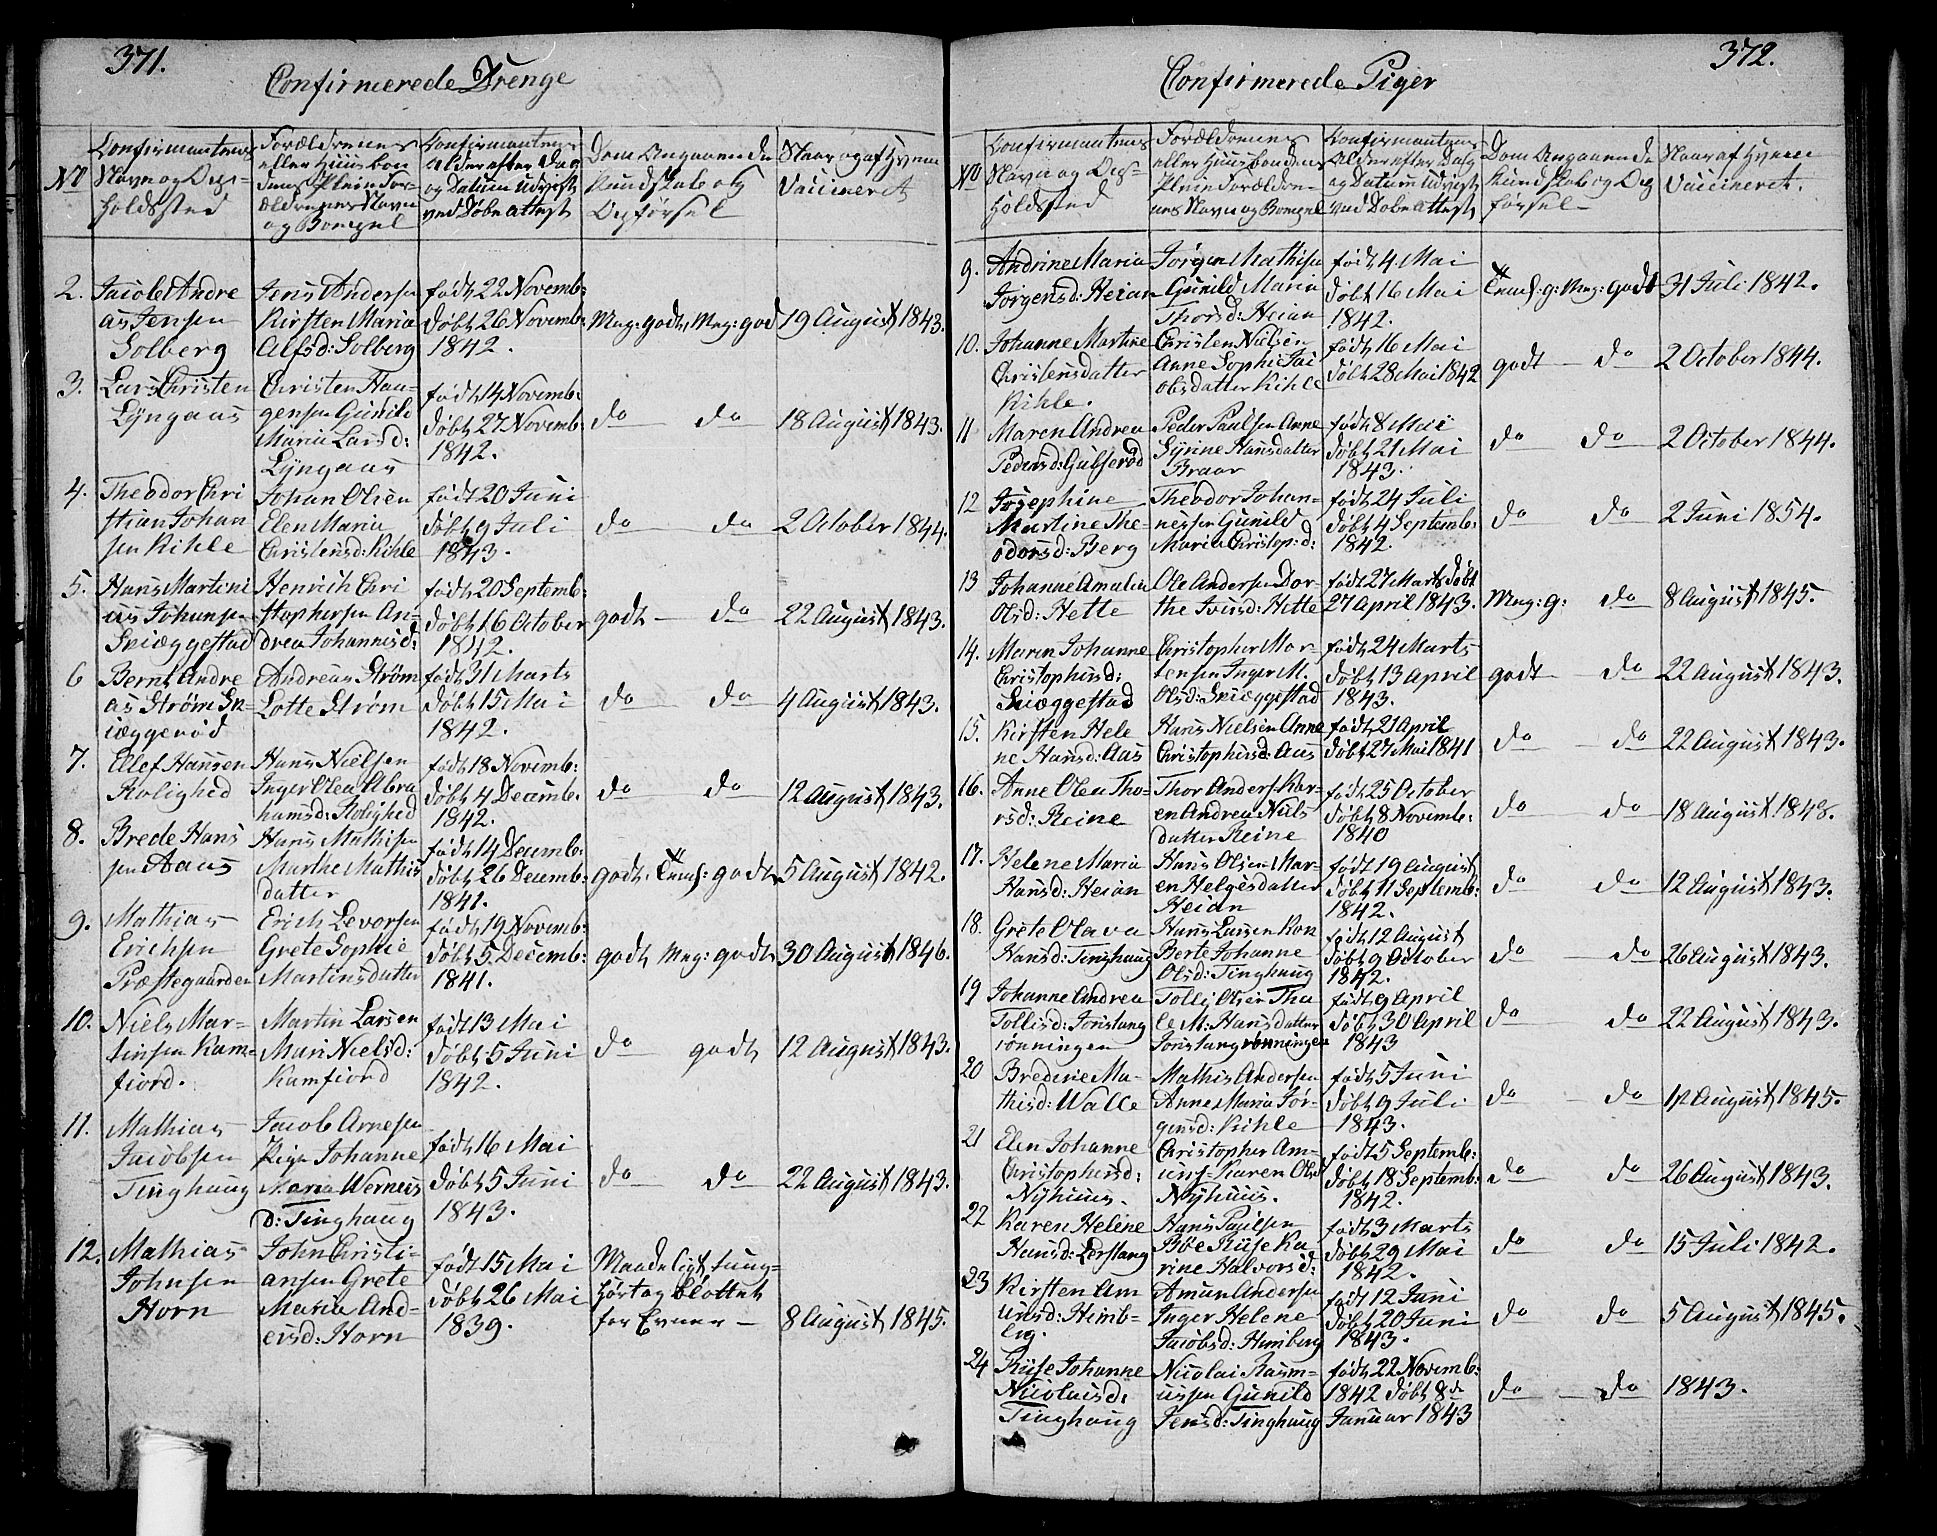 371.
Confirmerede Drenge
No
Confirmantens
Navn og Op-
holdssted
Forældrenes
eller Huusbon
dens Pleie For-
ældrenes Navn
og Bopæl
Confirmantens
Alder efter Dag
og Datum udviist
ved Døbe attest
Dom Angaaende
Kundskab og
Opførsel
Naar og af Hvem
Vaccineret
2. Jacob Andre
as Jensen
Solberg
Jens Andersen
Kirsten Maria
Alfsd: Solberg
født 22 Novemb:
døbt 26 Novemb:
1842.
Meg: godt, Meg: god
19 August 1843.
3. Lars Christen
Lyngaas
Christen Haa-
gensen Gunild
Maria Larsd:
Lyngaas
født 14 Novemb:
døbt 27 Novemb:
1842.
do do
18 August 1843.
4. Theodor Chri
stian Johan
sen Kihle
Johan Olsen
Elen Maria
Christensd: Kihle
født 20 Juni
døbt 9 Juli
1843.
do do
2 October 1844.
5. Hans Martini
us Johansen
Skiæggestad
Henrich Chri
stophersen An-
drea Johannisd:
født 20 Septemb:
døbt 16 October
1842.
godt do
22 August 1843.
6 Bernt Andre
as Strøm Sk
iæggerød
Andreas Strøm
Lotte Strøm
født 31 Marts
døbt 15 Mai
1842.
do do
4 August 1843.
7. Olef Hansen
Rolighed
Hans Nielsen
Inger Olea Abra
hamsd: Rolighed
født 18 Novemb:
døbt 4 Decemb:
1842.
do do
12 August 1843.
8. Brede Hans
sen Aaus
Hans Mathisen
Marthe Mathis
datter
født 14 Decemb:
døbt 26 Decemb:
1841.
godt, godt
5 August 1842.
9. Mathias
Erichsen
Præstegaarden
Erich Levorsen
Grete Sophie
Martinsdatter
født 19 Novemb:
døbt 5 Decemb:
1841.
godt Meg: godt
30 August 1846.
10. Niels Mar-
tinsen Kam-
fiord.
Martin Larsen
Mari Nielsd:
Kamfiord
født 13 Mai
døbt 5 Juni
1842.
do godt
12 August 1843.
11. Mathias
Jacobsen
Tinghaug
Jacob Arnesen
Pige Johanne
Maria Werners
d: Tinghaug
født 16 Mai
døbt 5 Juni
1843.
do do
22 August 1843.
12. Mathias
Johnsen
Horn
John Christi-
ansen Grete
Maria And-
ersd: Horn
født 15 Mai
døbt 26 Mai
1839.
Maadeligt, tung-
hørt og blottet
for Evner
8 August 1845.
372.
Confirmerede Piger
No
Confirmantens
Navn og Op-
holdssted
Forældrenes
eller Huusbondens
Pleie Forældre-
nes Navn og Bopæl
Confirmantens
Alder efter Dag
og Datum Udviist
ved Døbe Attest
Dom Angaaende
Kundskab og Op
førsel
Naar af Hvem
Vaccineret.
9. Andrine Maria
Jørgensd: Heian
Jørgen Mathisen
Gunild Maria
Thorsd: Heian
født 4 Mai
døbt 16 Mai
1842.
g: Meg: godt
31 Juli 1842.
10. Johanne Martine
Christensdatter
Kihle.
Christen Nilsen
Anne Sophie Jac
obsdatter Kihle
født 16 Mai
døbt 28 Mai 1842
godt do
2 October 1844.
11 Maren Andrea
Pedersd: Gulserød
Peder Paulsen Anne
Syrine Hansdatter
Braar
født 8 Mai
døbt 21 Mai
1843.
do do
2 October 1844.
12 Josephine
Martine The-
odorsd: Berg
Theodor Johan-
nessen Gunild
Maria Christop: d:
født 24 Juli
døbt 4 Septemb:
1842.
do do
2 Juni 1854.
13 Johanne Amalia
Olsd: Hette
Ole Andersen Dor-
the Iversd: Hette
født 27 Marts døbt
27 April 1843.
Meg: g: do
8 August 1845.
14. Maren Johanne
Christophersd:
Skiæggestad
Christopher Mor-
tensen Inger M.
Olsd: Skiæggestad
født 24 Marts
døbt 13 April
1843.
godt do
22 August 1843.
15. Kirsten Hele
ne Hansd: Aas
Hans Nielsen Anne
Christophersd: Aas
født 21 April
døbt 27 Mai 1841
do do
22 August 1843.
16. Anne Olea Tho-
rsd: Reine
Thor Anders. Kar-
en Andrea Nils
datter Reine
født 25 October
døbt 8 Novemb:
1840
do do
18 August 1848.
17. Helene Maria
Hansd: Heian
Hans Olsen Mar-
en Helgesdatter
Heian
født 19 August
døbt 11 Septemb:
1842.
do do
12 August 1843.
18. Grete Olava
Hansd: Tinghaug
Hans Larsen Kon
Berte Johanne
Olsd: Tinghaug
født 12 August
døbt 9 October
1842.
do do
26 August 1843.
19 Johanne Andrea
Tollisd: Jonstang
rønningen
Tolli Olsen Tha
le M: Hansdatter
Jonstangrønningen
født 9 April
døbt 30 April
1843
do do
22 August 1843.
20 Brederie Ma-
thisd: Walle
Mathis Andersen
Anne Maria Jør-
gensd: Kihle
født 5 Juni
døbt 9 Juli
1843.
do do
12 August 1845.
21 Elen Johanne
Christophersd:
Nyhuus.
Christopher Am-
unss. Karen Olsd
Nyhuus.
født 5 Septemb:
døbt 18 Septemb:
1842.
do do
26 August 1843.
22 Karen Helene
Hansd: Lerstang
Hans Paulsen
Bøe Riise Ka
rine Halvorsd:
født 3 Marts
døbt 29 Mai
1842.
do do
15 Juli 1842.
23 Kirsten Am
unsd: Himb-
erg.
Amun Andersen
Inger Helene
Jacobsd: Himberg
født 12 Juni
døbt 20 Juni
1843.
do do
5 August 1845.
24 Riise Johanne
Nicolaisd:
Tinghaug
Nicolai Rasm-
ussen Gunild
Jensd: Tinghaug
født 22 Novemb:
1842 døbt 8de
Januar 1843
do do
1843.